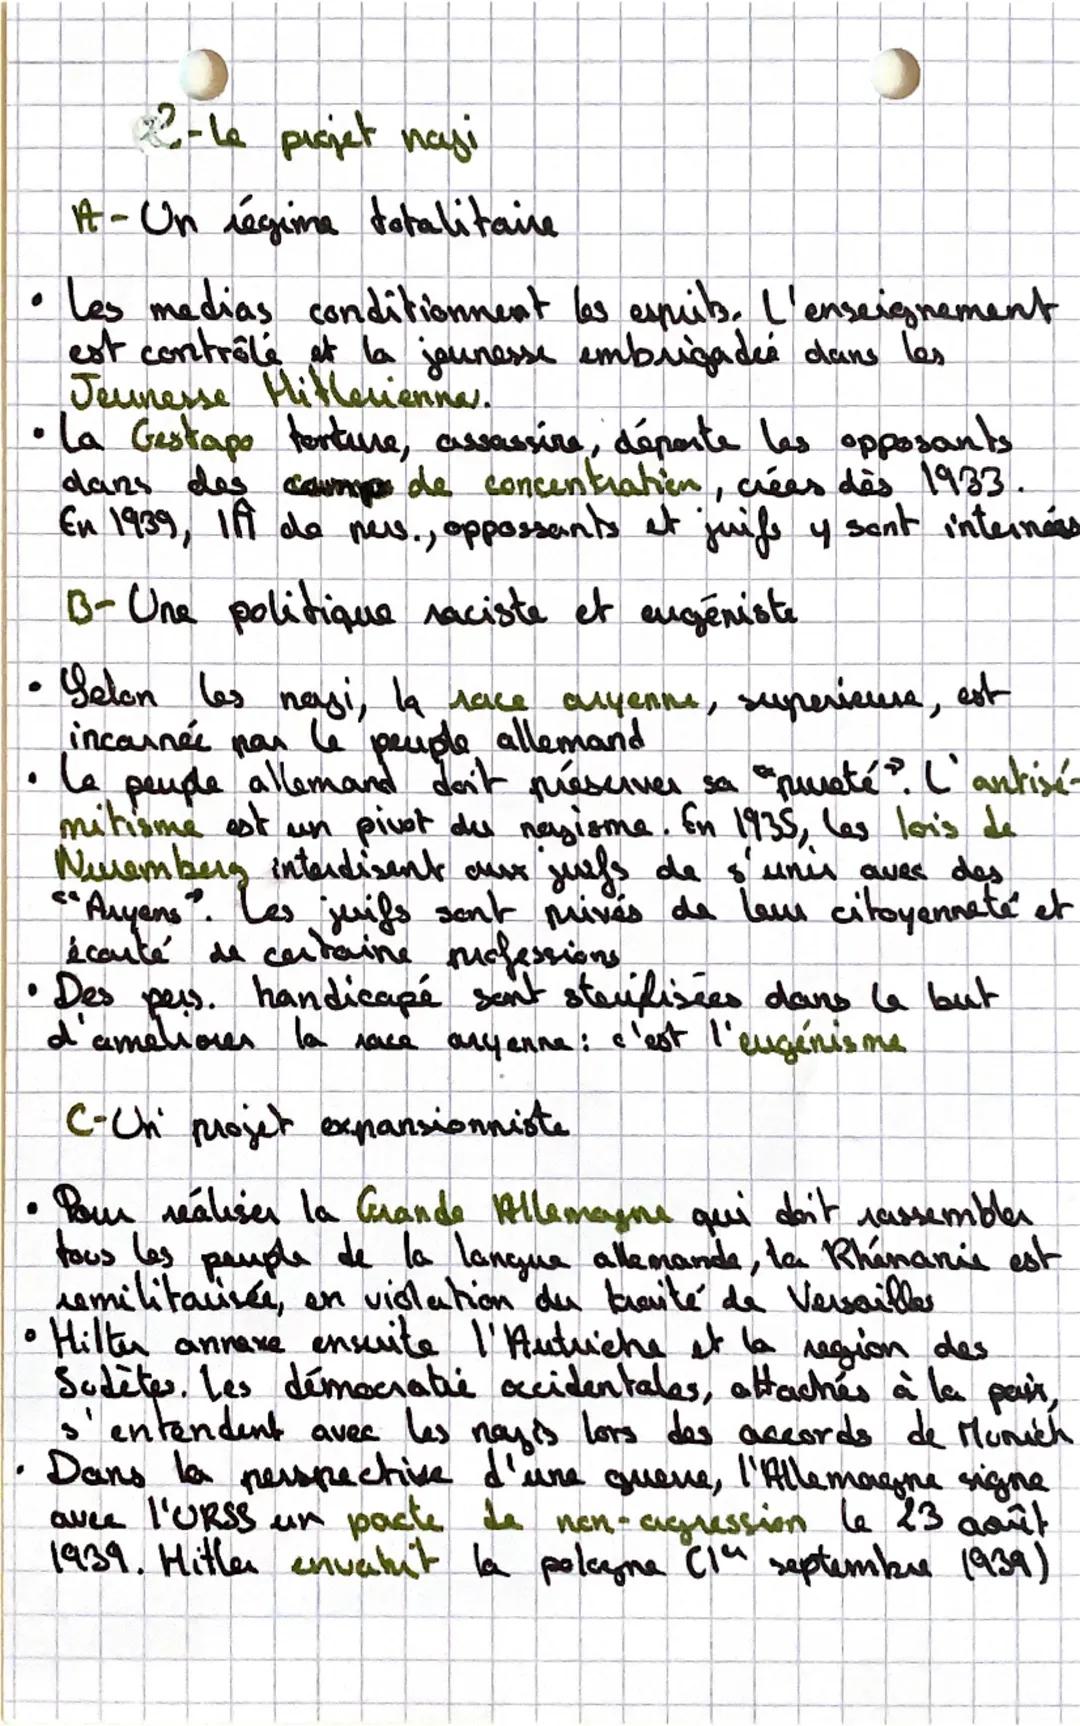 2-Le projet nazi
A-Un régime totalitaire
• Les medias conditionnent les esprits. L'enseignement
est contrôlé et la jeunesse embrigadée dans les
Jeunesse Hitlerienne.
• La Gestapo torture, assassine, déporte les opposants
dans des camps de concentration, crées dès 1933.
En 1939, 1M de pers., oppossants et juifs y sont internés
B-Une politique raciste et eugéniste
• Selon les nazi, la race aryenne, superieure, est
incarnée par le peuple allemand
• Le peuple allemand doit préserver sa "pureté". L'antisé-
mitisme est un pivot du nazisme. En 1935, les lois de
Nuremberg interdisent aux juifs de s'unir avec des
"Aryens". Les juifs sont privés de leur citoyenneté et
écarté de certaine professions
• Des pers. handicapé sont stérilisées dans le but
d'améliorer la race aryenne : c'est l'eugénisme
C-Un projet expansionniste
• Pour réaliser la Grande Allemagne qui doit rassembler
tous les peuple de la langue allemande, la Rhénanie est
remilitarisée, en violation du traité de Versailles
• Hilter annexe ensuite l'Autriche et la region des
Sudètes. Les démocratie occidentales, attachés à la paix,
s'entendent avec les nazis lors des accords de Munich
• Dans la perspective d'une guerre, l'Allemagne signe
avec l'URSS un pacte de non-agression le 23 août
1939. Hitler envahit la pologne (1er septembre 1939)